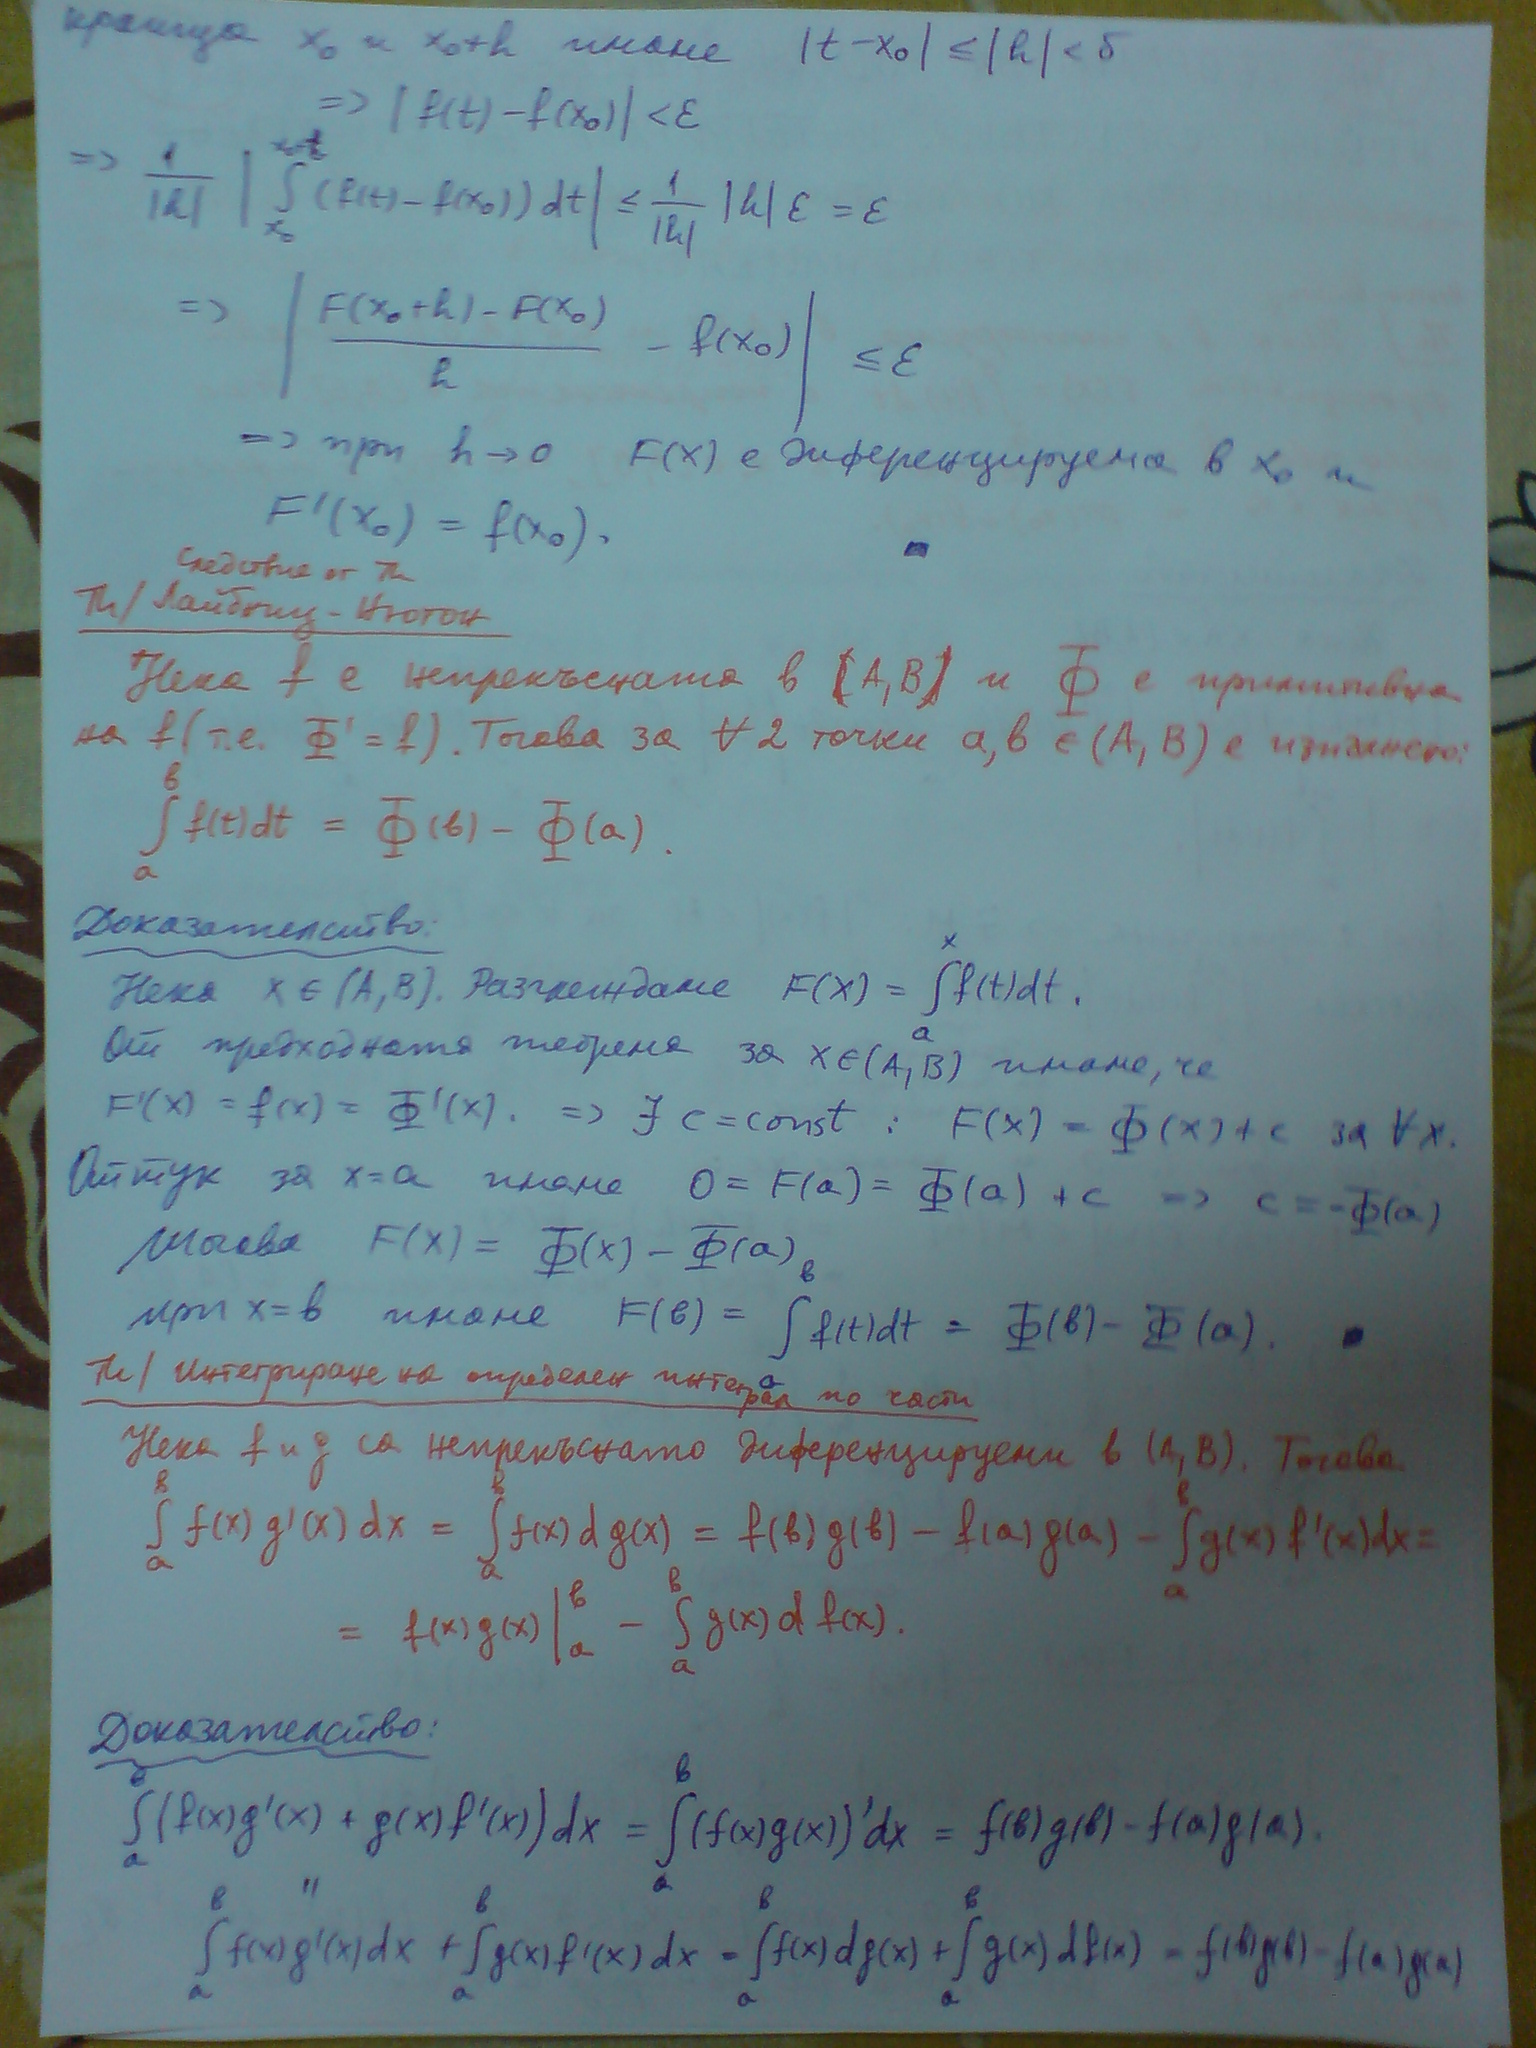 краища x₀ и x₀+h имаме |t-x₀| ≤ |h| < δ
=> |f(t) - f(x₀)| < ε
=> 1/|h| |∫_{x₀}^{x₀+h} (f(t) - f(x₀)) dt| ≤ 1/|h| |h| ε = ε
=> |(F(x₀+h) - F(x₀))/h - f(x₀)| ≤ ε
=> при h→0 F(x) е диференцируема в x₀ и
F'(x₀) = f(x₀).
Следствие от Th
Th/ Лайбниц - Нютон
Нека f е непрекъсната в [A,B] и Φ е примитивна
на f (т.е. Φ' = f). Тогава за ∀ 2 точки a,в ∈ (A,B) е изпълнено:
∫_a^в f(t)dt = Φ(в) - Φ(a).
Доказателство:
Нека x ∈ (A,B). Разглеждаме F(x) = ∫_a^x f(t)dt.
От предходната теорема за x∈(A,B) имаме, че
F'(x) = f(x) = Φ'(x). => ∃ c = const : F(x) = Φ(x) + c за ∀x.
Оттук за x=a имаме 0 = F(a) = Φ(a) + c => c = -Φ(a)
Тогава F(x) = Φ(x) - Φ(a)
при x=в имаме F(в) = ∫_a^в f(t)dt = Φ(в) - Φ(a).
Th/ Интегриране на определен интеграл по части
Нека f и g са непрекъснато диференцируеми в (A,B). Тогава
∫_a^в f(x) g'(x) dx = ∫_a^в f(x) d g(x) = f(в)g(в) - f(a)g(a) - ∫_a^в g(x) f'(x)dx =
= f(x)g(x)|_a^в - ∫_a^в g(x) d f(x).
Доказателство:
∫_a^в (f(x)g'(x) + g(x)f'(x)) dx = ∫_a^в (f(x)g(x))' dx = f(в)g(в) - f(a)g(a).
"
∫_a^в f(x)g'(x)dx + ∫_a^в g(x)f'(x)dx = ∫_a^в f(x)dg(x) + ∫_a^в g(x)df(x) = f(в)g(в) - f(a)g(a)